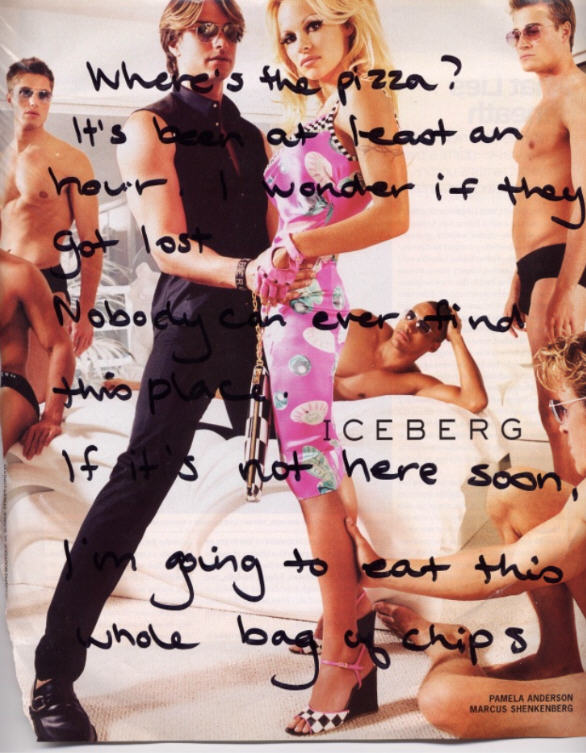 Where's the pizza?
It's been at least an
hour. I wonder if they
got lost
Nobody can ever find
this place.
ICEBERG
If it's not here soon,
I'm going to eat this
whole bag of chips
PAMELA ANDERSON
MARCUS SHENKENBERG